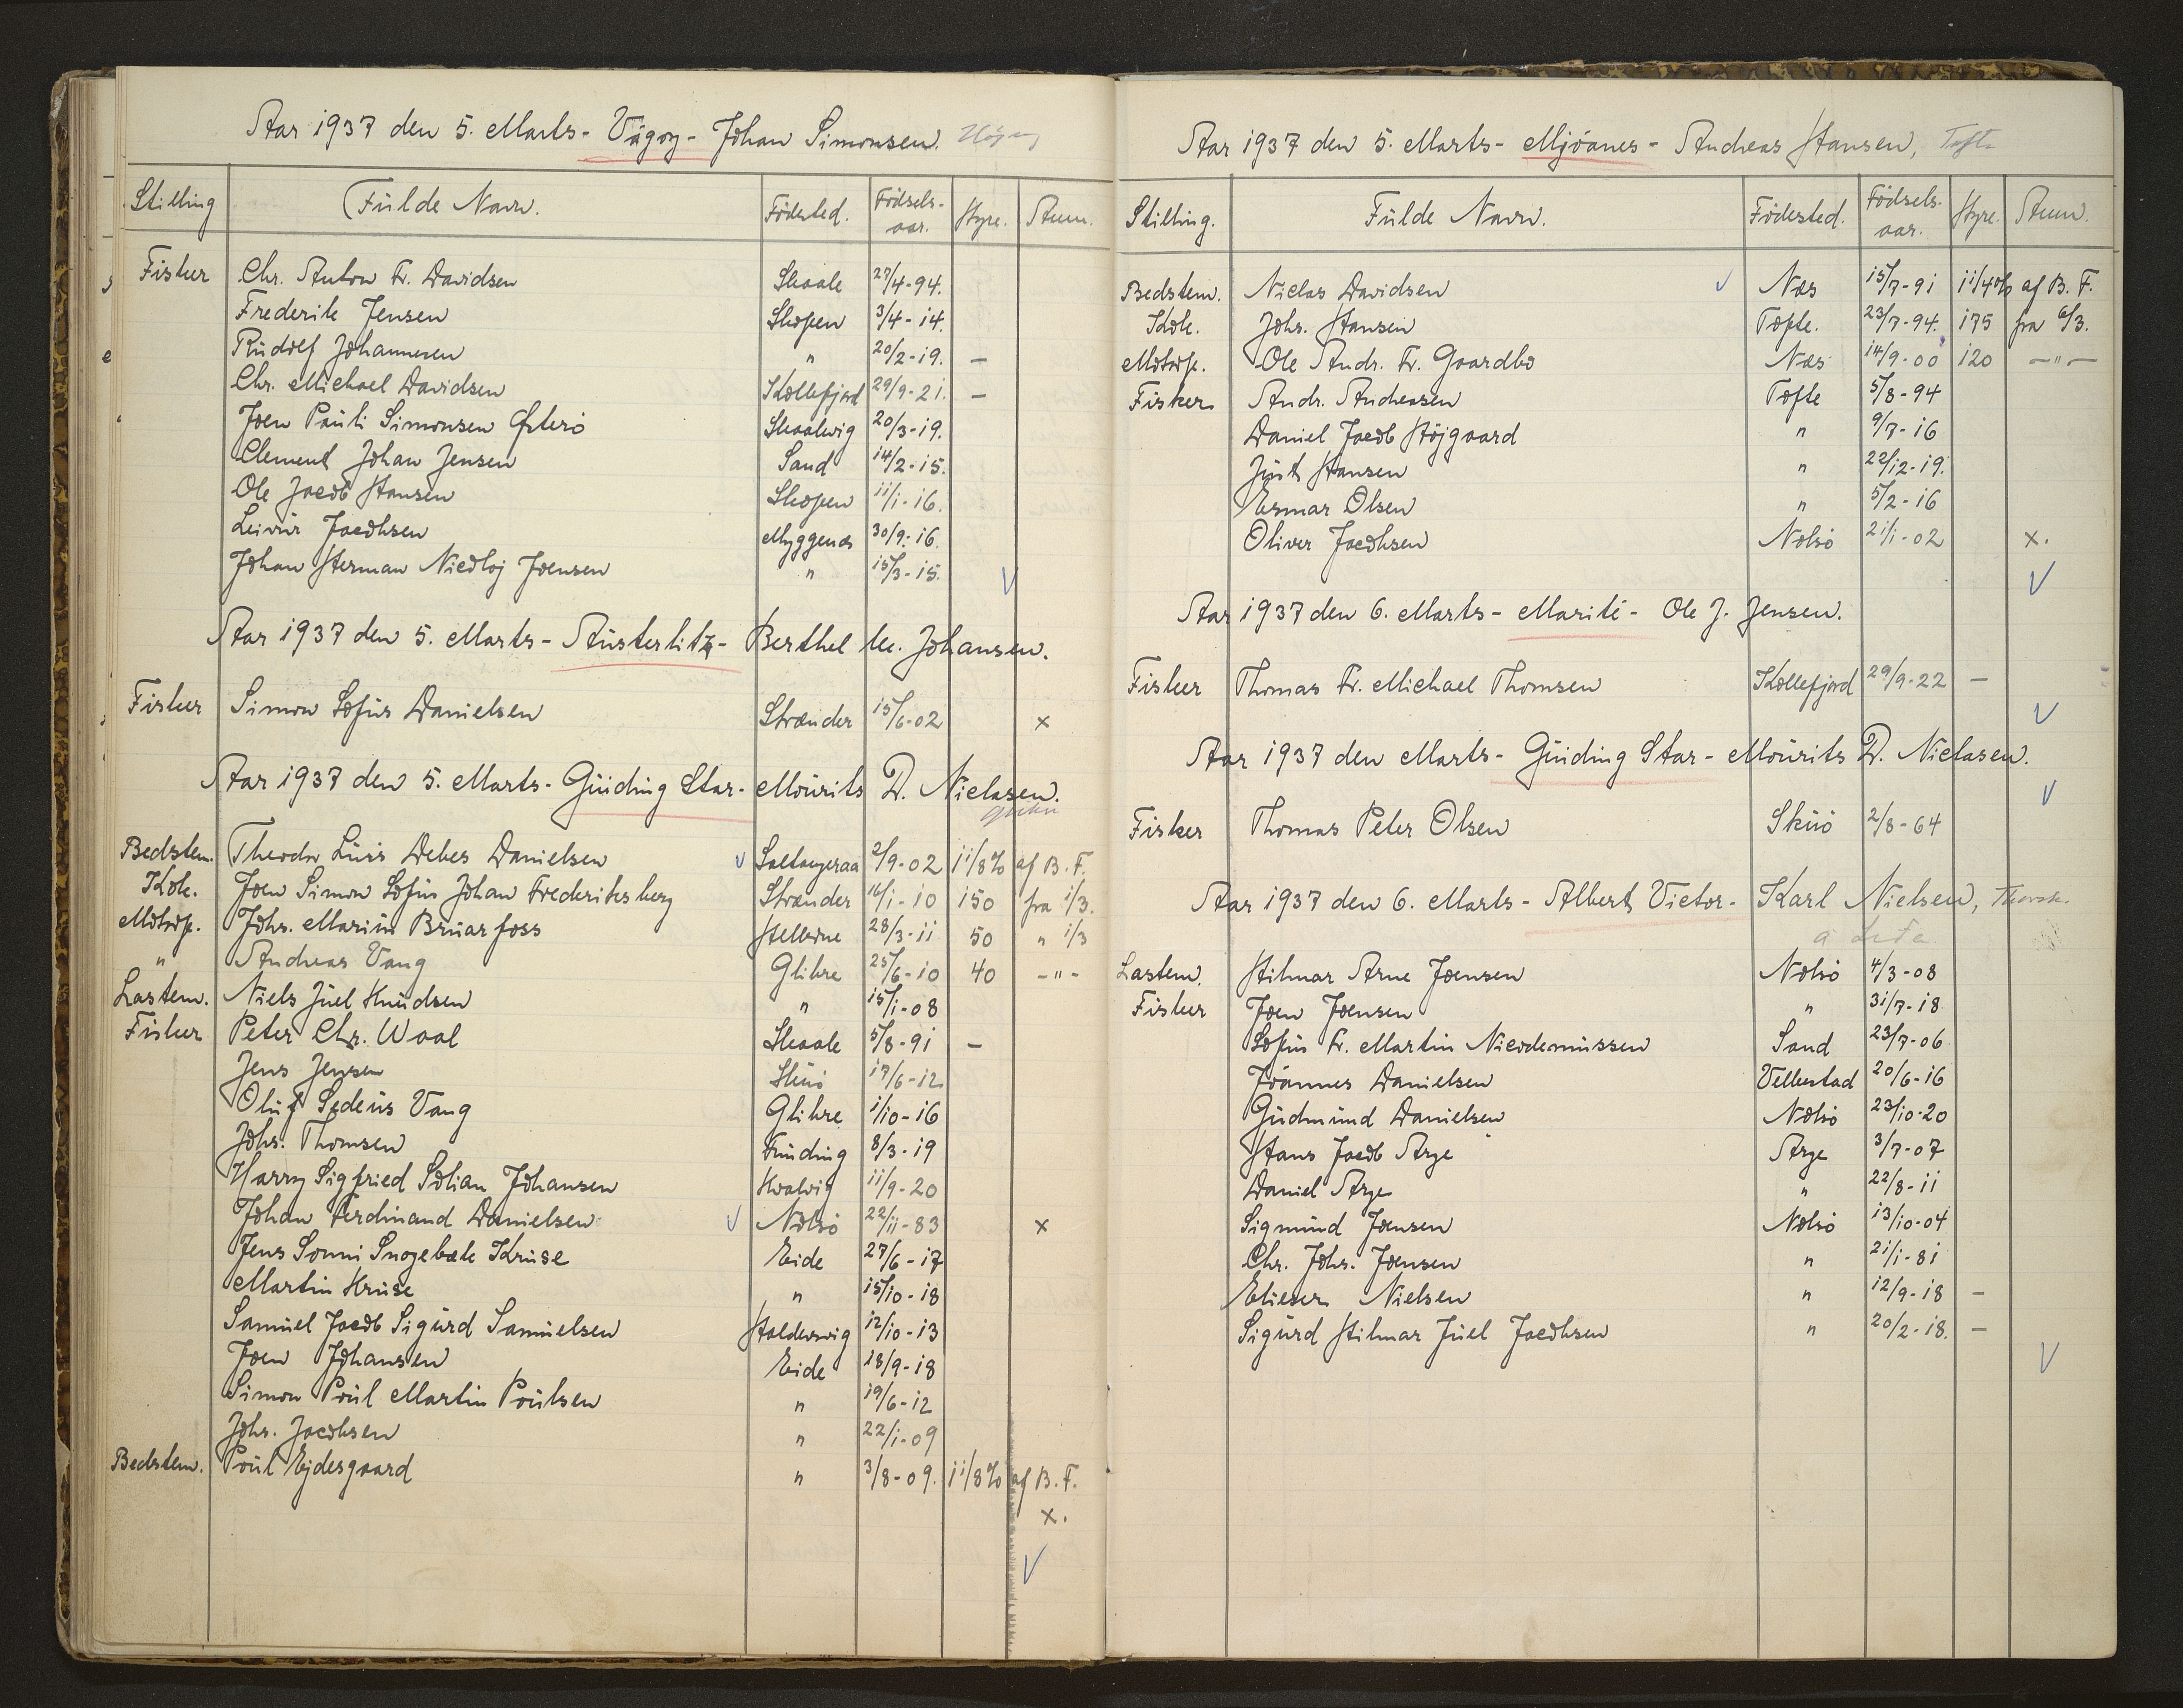 Aar 1937 den 5. Marts - Vágoy - Johan Simonsen.
Stilling Fulde Navn. Födested. Födsels-aar. Hyre. Anm.
Fisker Chr. Anton Fr. Davidsen Skaale 27/4-94.
Frederik Jensen Skopen 3/4-14.
Rudolf Johannesen " 20/2-19. —
Chr. Michael Davidsen Kollefjord 29/9-21. —
Joen Pauli Simonsen Østerö Skaalevig 20/3-19.
Clement Johan Jensen Sand 14/2-15.
Ole Jacob Hansen Skopen 11/1-16.
Leivur Jacobsen Myggenæs 30/9-16.
Johan Herman Nicdloj Joensen " 15/3-15. V
Aar 1937 den 5. Marts - Austerlitz - Berthel M. Johansen.
Fisker Simon Sofus Danielsen Strænder 15/6-02 x
Aar 1937 den 5. Marts - Guiding Star - Mourits D. Niclasen.
Bedstem. Theodor Luis Debes Danielsen V Saltangeraa 2/9-02 11/8% af B. F.
Kok. Joen Simon Sofus Johan Frederiksberg Strænder 16/1-10 150 fra 1/3.
Motorp. Johs. Marius Bruarfoss Hellerne 28/3-11 50 " 1/3
" Andreas Vang Glibre 25/6-10 40 -"-
Lastem. Niels Juel Knudsen " 15/1-08
Fisker Peter Chr. Waal Skaale 5/8-91 —
Jens Jensen Skuö 17/6-12
Oluf Sedeus Vang Glibre 1/10-16
Johs. Thomsen Funding 8/3-19
Harry Sigfried Solian Johansen Kvalvig 11/9-20
Johan Ferdinand Danielsen V Nolsö 22/11-83 x
Jens Sonni Snogebæk Kruse Eide 27/6-17
Martin Kruse " 15/10-18
Samuel Jacob Sigurd Samuelsen Haldersvig 12/10-13
Joen Johansen Eide 18/9-18
Simon Poul Martin Poulsen " 19/6-12
Johs. Jacobsen " 22/1-09
Bedstem. Poul Ejdesgaard " 3/8-09. 11/8% af B. F.
x.
V
Aar 1937 den 5. Marts - Mjóanes - Andreas Hansen, Tofte
Stilling. Fulde Navn. Födested. Födsels-aar. Hyre. Anm.
Bedstem. Niclas Davidsen V Næs 15/7-91 11/40% af B. F.
Kok. Johs. Hansen Tofte. 23/7-94. 175 fra 6/3.
Motorp. Ole Andr. Fr. Gaardbo Næs 14/9-00 120 —"—
Fisker Andr. Andreasen Tofte 5/8-94
Daniel Jacob Höjgaard " 9/7-16
Just Hansen " 22/12-19.
Esmar Olsen " 5/2-16
Oliver Jacobsen Nolsö 21/1-02 x.
V
Aar 1937 den 6. Marts - Marité - Ole J. Jensen.
Fisker Thomas Fr. Michael Thomsen Kollefjord 29/9-22 —
V
Aar 1937 den Marts - Guiding Star - Mourits D. Niclasen.
V
Fisker Thomas Peter Olsen Skuö 2/8-64
Aar 1937 den 6. Marts - Albert Victor - Karl Nielsen, Thorsh.
Lastem. Hilmar Arne Joensen Nolsö 4/3-08
Fisker Joen Joensen " 31/7-18
Sofus Fr. Martin Nicodemussen Sand 23/7-06
Jóannes Danielsen Velbestad 20/6-16
Gudmund Danielsen Nolsö 23/10-20
Hans Jacob Arge Arge 3/7-07
Daniel Arge " 22/8-11
Sigmund Joensen Nolsö 13/10-04
Chr. Johs. Joensen " 21/1-81
Elieser Nielsen " 12/9-18 —
Sigurd Hilmar Juel Jacobsen " 20/2-18. —
V